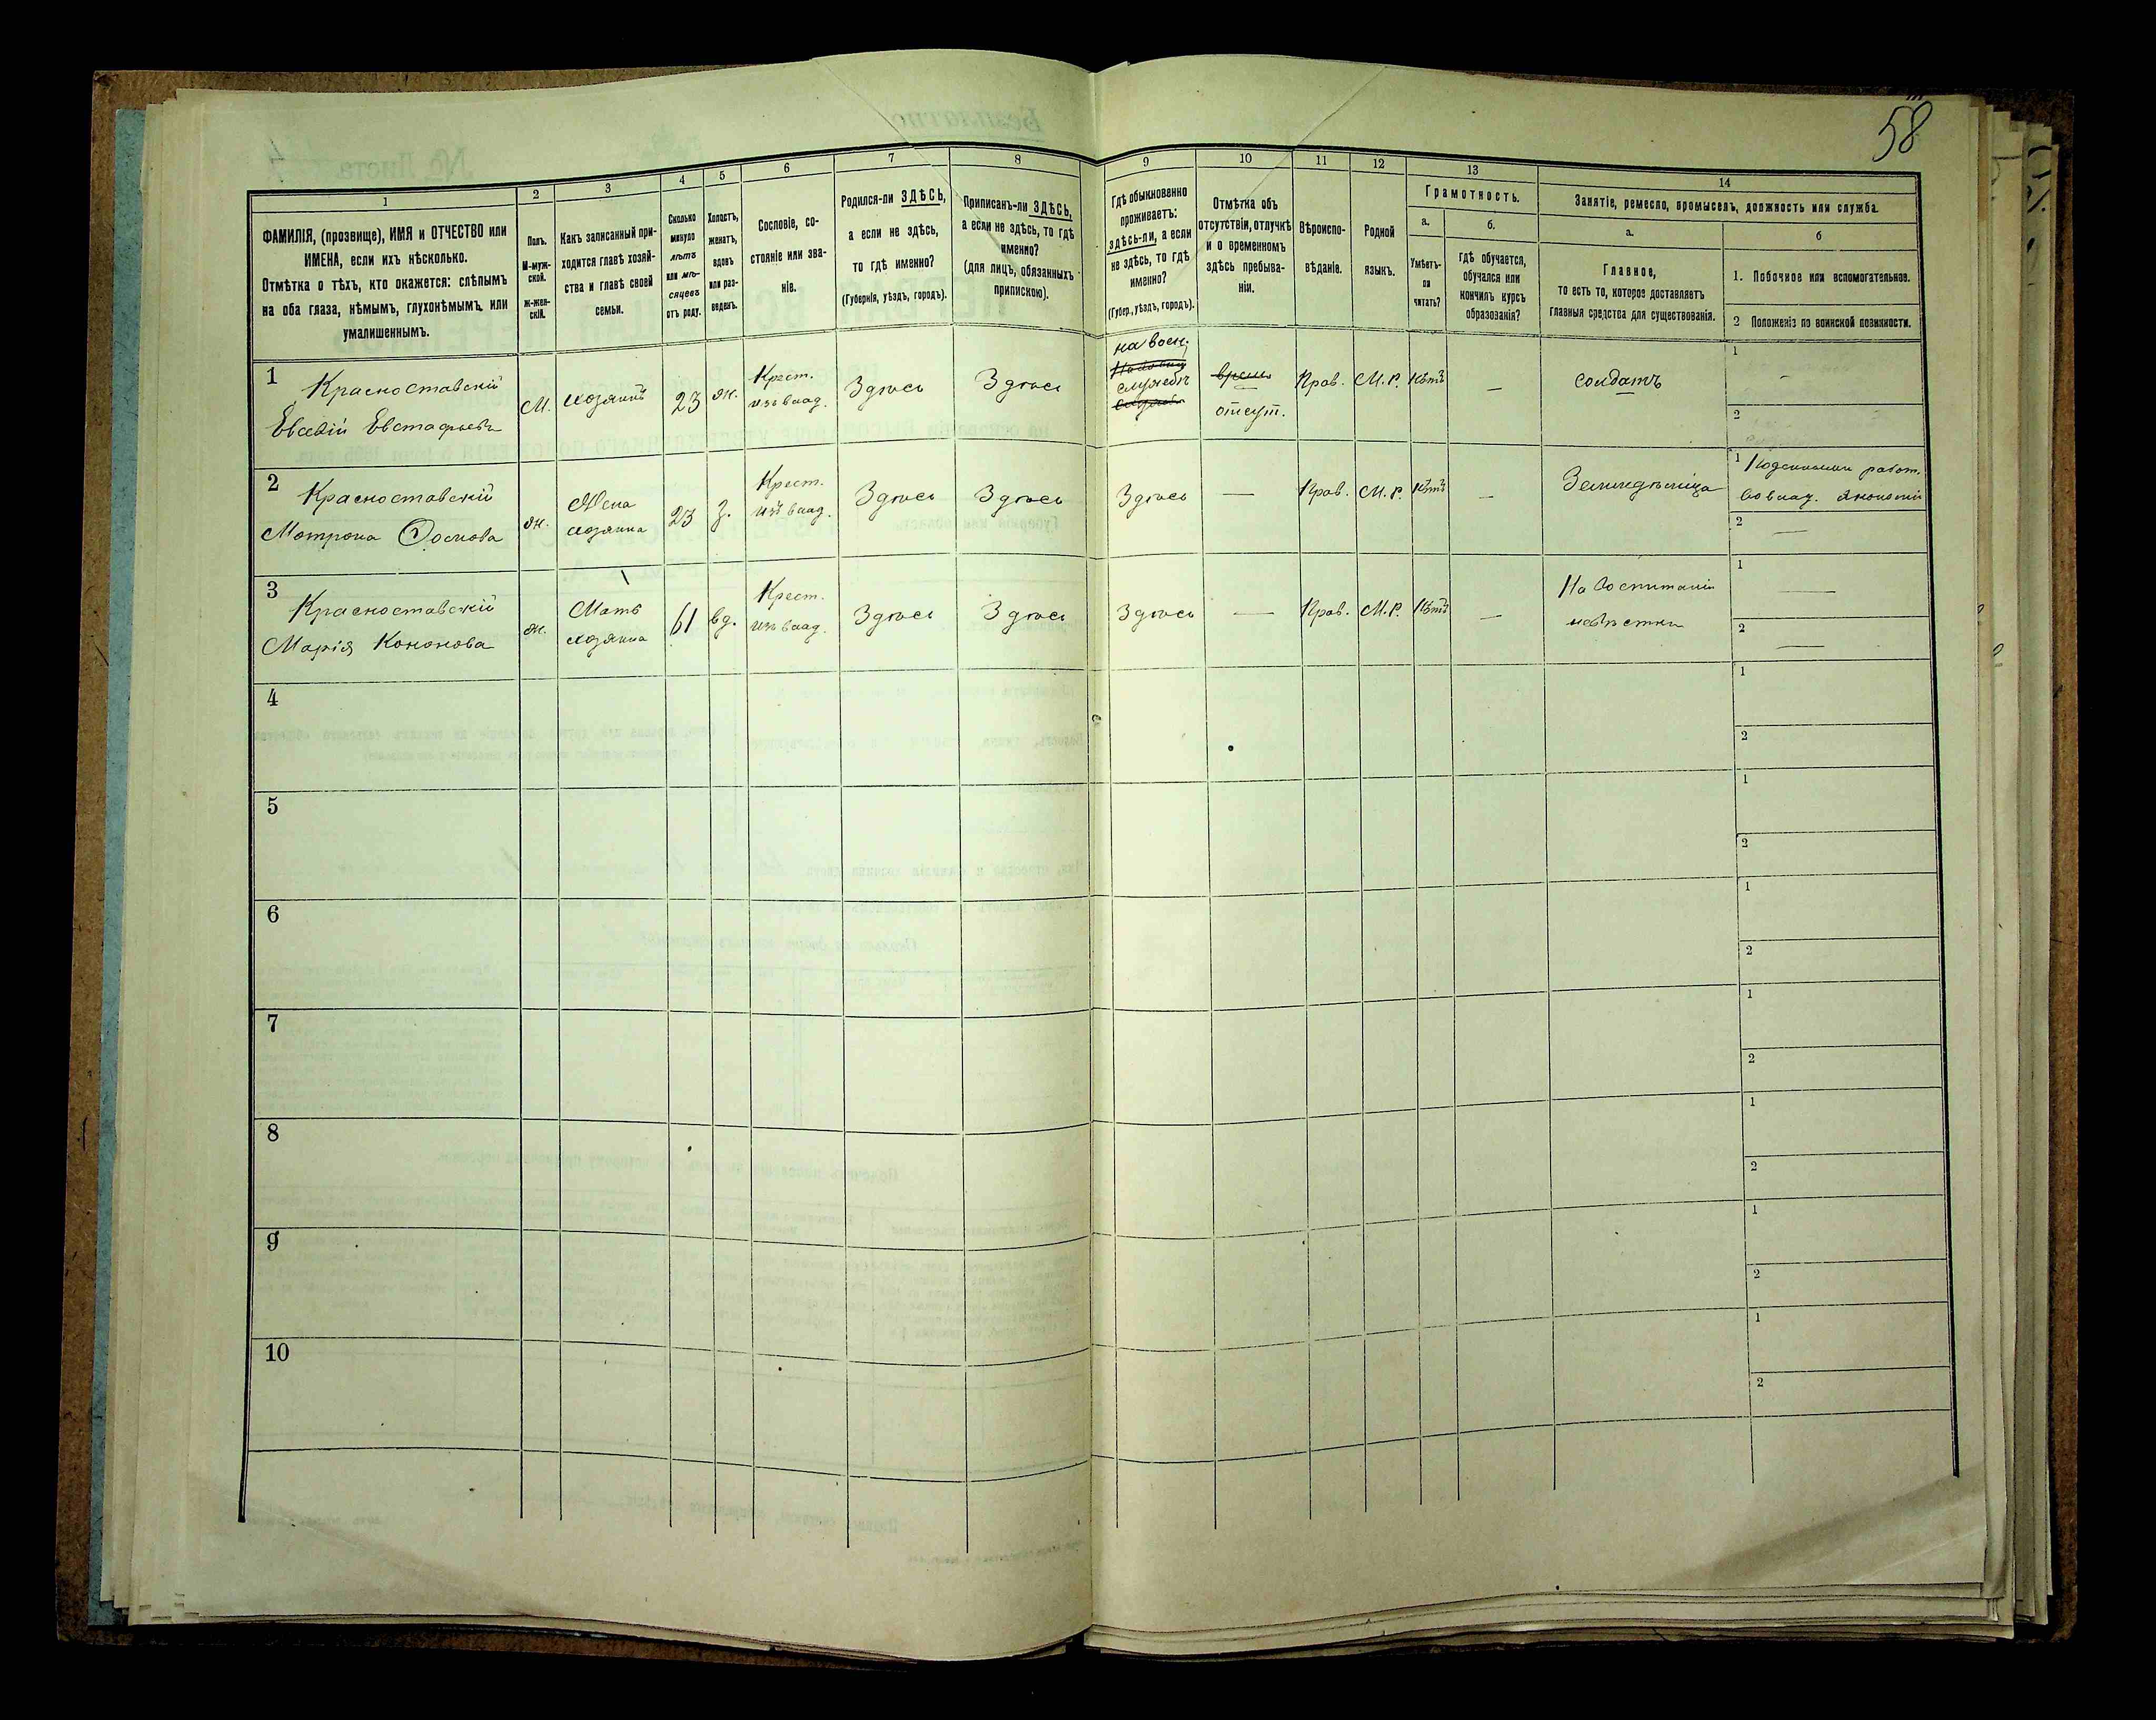 58
1
2
3
4
5
6
7
8
9
10
11
12
13
14
ФАМИЛІЯ, (прозвище), ИМЯ и ОТЧЕСТВО или
ИМЕНА, если ихъ нѣсколько.
Отмѣтка о тѣхъ, кто окажется: слѣпымъ
на оба глаза, нѣмымъ, глухонѣмымъ или
умалишеннымъ.
Полъ.
М-муж-
ской.
Ж-жен-
скій.
Какъ записанный при-
ходится главѣ хозяй-
ства и главѣ своей
семьи.
Сколько
минуло
лѣтъ
или мѣ-
сяцевъ
отъ роду.
Холостъ,
женатъ,
вдовъ
или раз-
веденъ.
Сословіе, со-
стояніе или зва-
ніе.
Родился-ли ЗДѢСЬ,
а если не здѣсь,
то гдѣ именно?
(Губернія, уѣздъ, городъ).
Приписанъ-ли ЗДѢСЬ,
а если не здѣсь, то гдѣ
именно?
(для лицъ, обязанныхъ
припискою).
Гдѣ обыкновенно
проживаетъ:
здѣсь-ли, а если
не здѣсь, то гдѣ
именно?
(Губер., уѣздъ, городъ).
Отмѣтка объ
отсутствіи, отлучкѣ
и о временномъ
здѣсь пребыва-
ніи.
Вѣроиспо-
вѣданіе.
Родной
языкъ.
Грамотность.
а.
Умѣетъ-
ли
читать?
б.
гдѣ обучается,
обучался или
кончилъ курсъ
образованія?
Занятіе, ремесло, промыселъ, должность или служба.
а.
Главное,
то есть то, которое доставляетъ
главныя средства для существованія.
б
1. Побочное или вспомогательное.
2 Положеніе по воинской повинности.
1
Красноставскій
Евсевій Евстафьевъ
М.
хозяинъ
23
ж.
Крест.
изъ влад.
Здѣсь
Здѣсь
на воен.
службѣ
времен
отсут.
Прав.
М.Р.
Нѣтъ
—
солдатъ
1
2
2
Красноставскій
Мотрона
ж.
Жена
хозяина
23
з.
Крест.
изъ влад.
Здѣсь
Здѣсь
Здѣсь
—
Прав.
М.Р.
Нѣтъ
—
Земледѣлица
1 Поденными работ.
во влад. экономіи
2 —
3
Красноставскій
Марія Кононова
ж.
Мать
хозяина
61
вд.
Крест.
изъ влад.
Здѣсь
Здѣсь
Здѣсь
—
Прав.
М.Р.
Нѣтъ
—
На воспитаніи
невѣстки
1 —
2 —
4
1
2
5
1
2
6
1
2
7
1
2
8
1
2
9
1
2
10
1
2